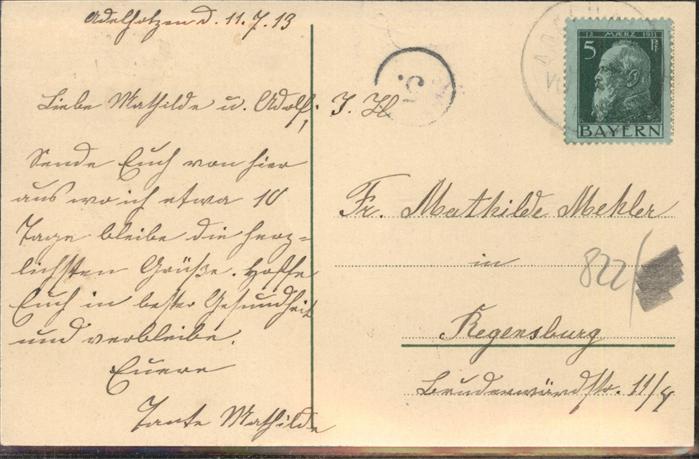 Adelholzen d. 11.7.13
Liebe Mathilde u. Adolf,
Sende Euch von hier
aus wo ich etwa 10
Tage bleibe die herz-
lichsten Grüße. Hoffe
Euch in bester Gesundheit
und verbleibe.
Euere
Tante Mathilde
12. MÄRZ 1911
5 Pf
BAYERN
Fr. Mathilde Mehler
in
Regensburg
11/4
822/